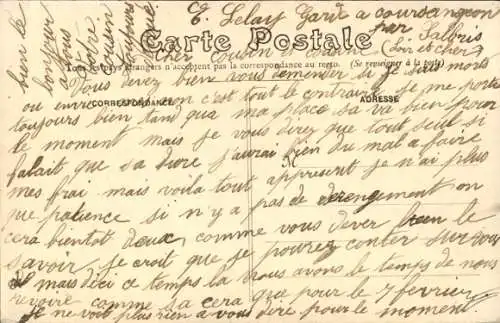 E. Lelay Garde a Coursangeon
par Salbris
(Loir et cher)
Carte Postale
Cher Cousin
Tous les pays étrangers n'acceptent pas la correspondance au recto. (Se renseigner à la poste)
Vous devez bien vous demender si je suis mort
ou envie non c'est tout le contraire je me porte
CORRESPONDANCE
ADRESSE
toujours bien tant qua ma place sa va bien pour
le moment mais je vous direz que tout seul si
falait que sa dure j'aurai bien du mal a faire
mes frai mais voila tout appresent je n'ai plus
que patience si n'y a pas de derengement on
cera bientot deux comme vous dever bien le
savoir je croit que je pourez conter sur vous
mais dici ce temps la nous avons le temps de nous
revoire comme sa cera que pour le 7 fevrier
je ne voit plus rien a vous dire pour le moment
bien le
bonjour
a vous
Votre
Cousin
toujours